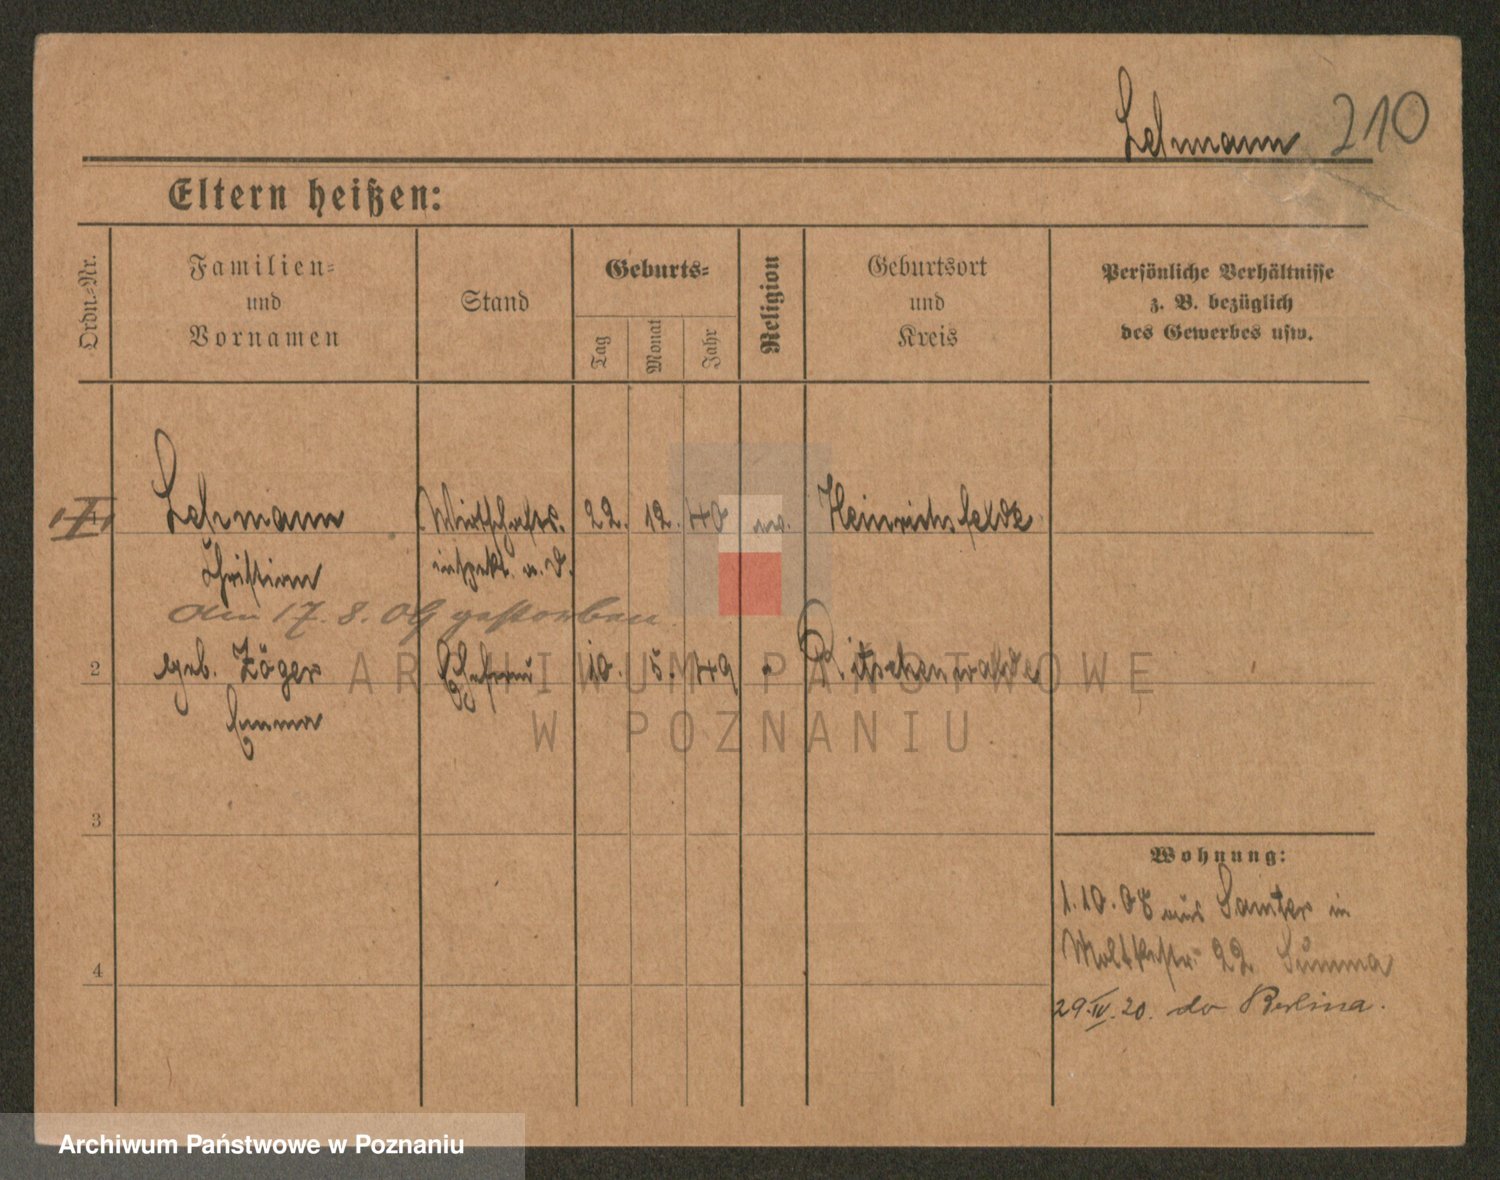 Lehmann 210
Eltern heißen:
Ordn.-Nr.
Familien-
und
Vornamen
Stand
Geburts-
Tag
Monat
Jahr
Religion
Geburtsort
und
Kreis
Persönliche Verhältnisse
z. B. bezüglich
des Gewerbes usw.
1 Lehmann Wirtschafts- 22. 12. 40 ev. Heinrichsfelde
Christian inspekt. a. D.
am 17. 8. 09 gestorben.
2 geb. Zöger Ehefrau 10. 5. 49 " Ritschenwalde
Emma
3
4
Wohnung:
1.10.08 aus Samter in
Moltkestr. 22 Summa
29.IV.20. do Berlina.
ARCHIWUM PAŃSTWOWE
W POZNANIU
Archiwum Państwowe w Poznaniu